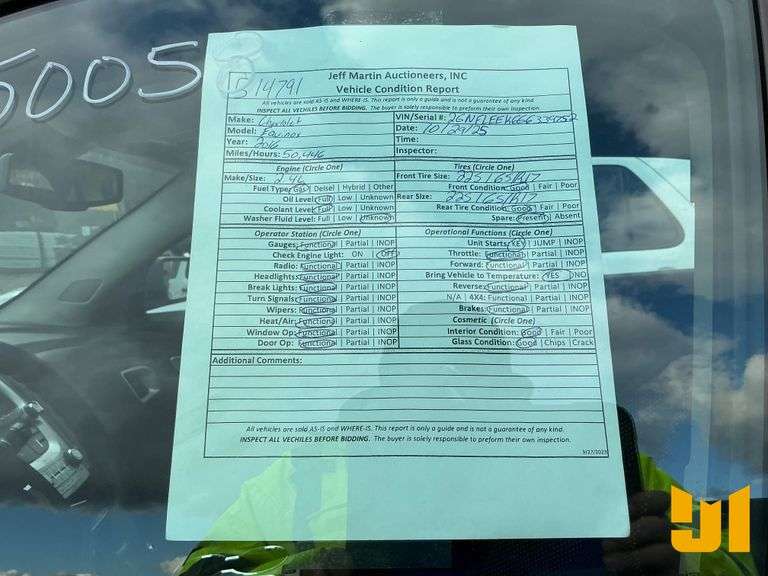 5005
514791
Jeff Martin Auctioneers, INC
Vehicle Condition Report
All vehicles are sold AS-IS and WHERE-IS. This report is only a guide and is not a guarantee of any kind.
INSPECT ALL VECHILES BEFORE BIDDING. The buyer is solely responsible to preform their own inspection.
Make: Chevrolet
Model: Equinox
Year: 2016
Miles/Hours: 50,446
VIN/Serial #:
Date: 10/29/25
Time:
Inspector:
Engine (Circle One)
Make/Size: 2.4L
Fuel Type: Gas | Deisel | Hybrid | Other
Oil Level: Full | Low | Unknown
Coolant Level: Full | Low | Unknown
Washer Fluid Level: Full | Low | Unknown
Tires (Circle One)
Front Tire Size: 225/65/R17
Front Condition: Good | Fair | Poor
Rear Size: 225/65/R17
Rear Tire Condition: Good | Fair | Poor
Spare: Present | Absent
Operator Station (Circle One)
Gauges: Functional | Partial | INOP
Check Engine Light: ON OFF
Radio: Functional | Partial | INOP
Headlights: Functional | Partial | INOP
Break Lights: Functional | Partial | INOP
Turn Signals: Functional | Partial | INOP
Wipers: Functional | Partial | INOP
Heat/Air: Functional | Partial | INOP
Window Op: Functional | Partial | INOP
Door Op: Functional | Partial | INOP
Operational Functions (Circle One)
Unit Starts: KEY | JUMP | INOP
Throttle: Functional | Partial | INOP
Forward: Functional | Partial | INOP
Bring Vehicle to Temperature: YES | NO
Reverse: Functional | Partial | INOP
N/A | 4X4: Functional | Partial | INOP
Brakes: Functional | Partial | INOP
Cosmetic (Circle One)
Interior Condition: Good | Fair | Poor
Glass Condition: Good | Chips | Crack
Additional Comments:
All vehicles are sold AS-IS and WHERE-IS. This report is only a guide and is not a guarantee of any kind.
INSPECT ALL VECHILES BEFORE BIDDING. The buyer is solely responsible to preform their own inspection.